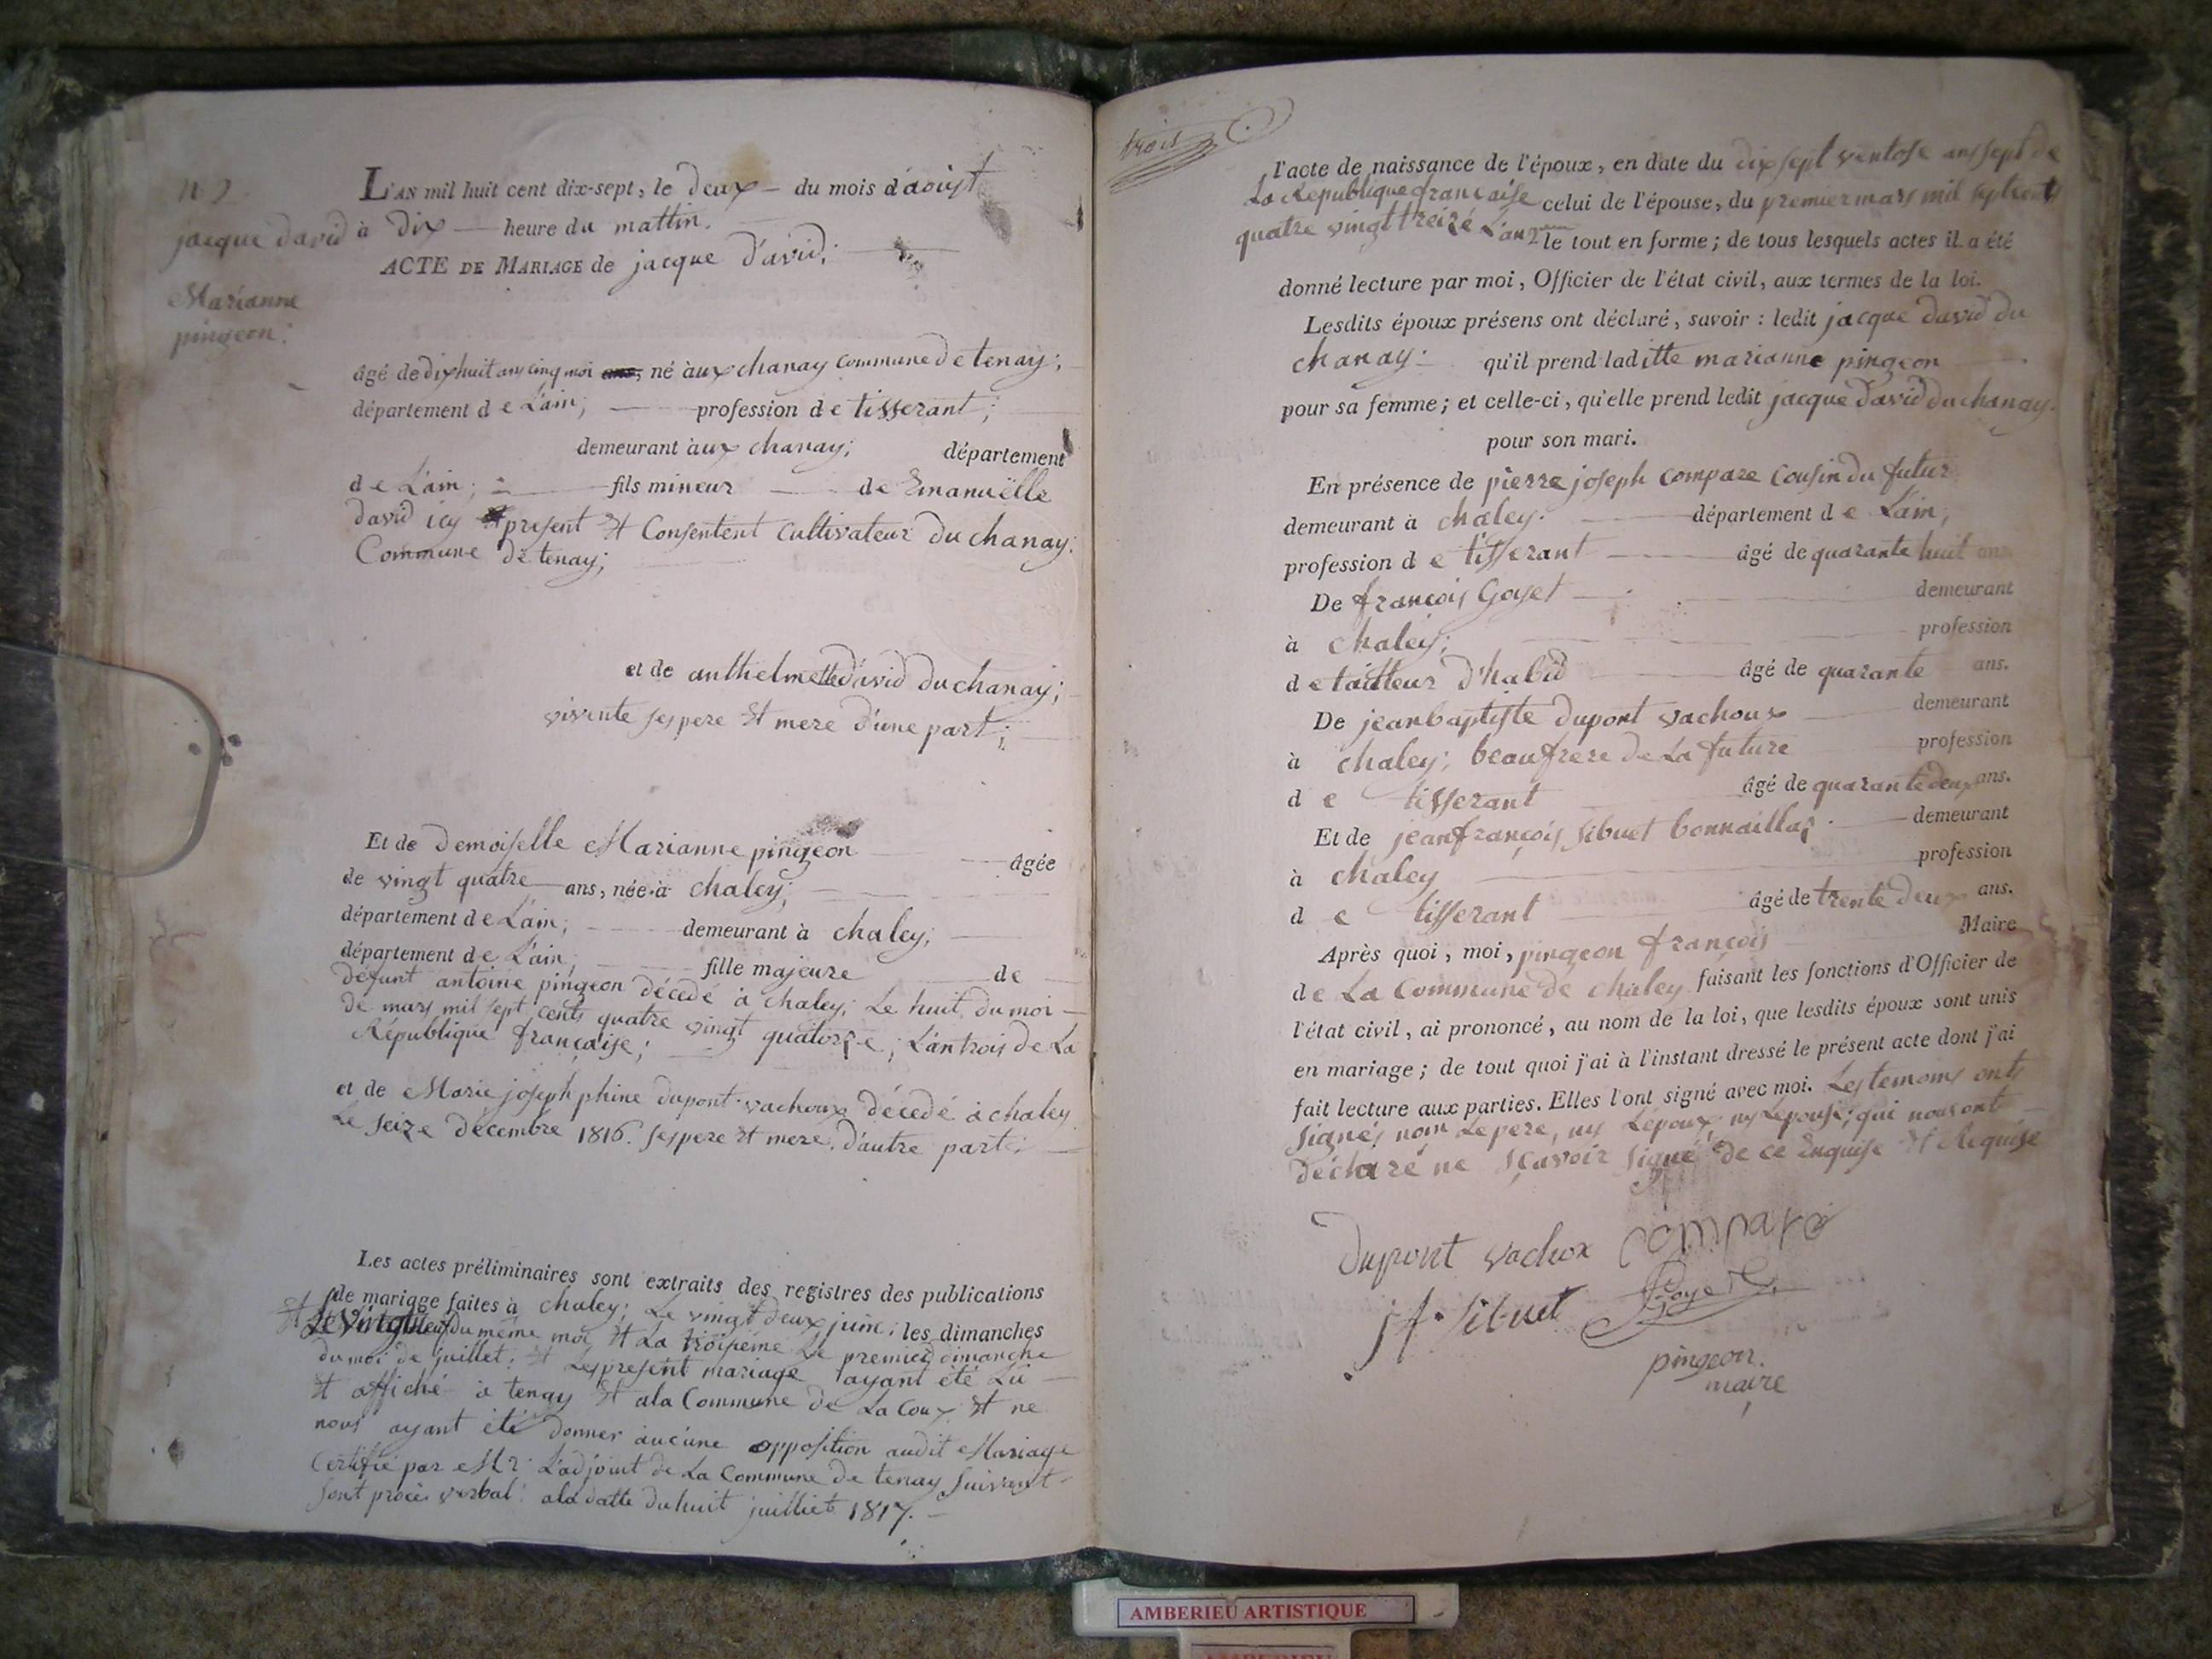 N 2
jacque david
Marianne
pingeon.
L'AN mil huit cent dix-sept, le deux du mois d'aoust
à dix heure du mattin.
ACTE DE MARIAGE de jacque david;
âgé de dix huit ans cinq moi ans, né aux chanay Commune de tenay;
département de L'ain; profession de tisserant;
demeurant aux chanay; département
de L'ain; fils mineur de Emanuëlle
david icy present et Consentent Cultivateur du chanay
Commune de tenay;
et de anthelmette david du chanay;
vivente ses pere et mere d'une part;
Et de Demoiselle Marianne pingeon âgée
de vingt quatre ans, née à chaley;
département de L'ain; demeurant à chaley;
département de L'ain; fille majeure de
défunt antoine pingeon décedé à chaley; Le huit du moi
de mars mil sept cents quatre vingt quatorze; L'an trois de La
République française;
et de Marie joseph phine dupont vachoux décedé à chaley
Le seize décembre 1816. ses pere et mere. d'autre part;
Les actes préliminaires sont extraits des registres des publications
de mariage faites à chaley; Le vingt deux juin; les dimanches
et Le vingt neuf du même moi et La troisieme Le premier dimanche
du moi de juillet; et Les present mariage ayant été Lu
et affiché à tenay et a la Commune de La Coux et ne
nous ayant été donner aucune opposition audit Mariage
Certifié par Mr L'adjoint de La Commune de tenay suivant
sont procès verbal a la datte du huit juilliet 1817.
trois
l'acte de naissance de l'époux, en date du dix sept ventose an sept de
La Republique française celui de l'épouse, du premier mars mil sept cents
quatre vingt treize L'an 2 le tout en forme; de tous lesquels actes il a été
donné lecture par moi, Officier de l'état civil, aux termes de la loi.
Lesdits époux présens ont déclaré, savoir : ledit jacque david du
chanay qu'il prend laditte marianne pingeon
pour sa femme; et celle-ci, qu'elle prend ledit jacque david du chanay.
pour son mari.
En présence de pierre joseph compare Cousin du futur
demeurant à chaley. département de L'ain,
profession de tisserant âgé de quarante huit ans
De françois Goyet demeurant
à chaley; profession
de tailleur d'habid âgé de quarante ans.
De jeanbaptiste dupont vachoux demeurant
à chaley; beaufrere de La future profession
de tisserant âgé de quarante deux ans.
Et de jeanfrançois sibuet bonnaillas demeurant
à chaley profession
de tisserant âgé de trente deux ans.
Après quoi, moi, pingeon françois Maire
de La Commune de chaley faisant les fonctions d'Officier de
l'état civil, ai prononcé, au nom de la loi, que lesdits époux sont unis
en mariage; de tout quoi j'ai à l'instant dressé le présent acte dont j'ai
fait lecture aux parties. Elles l'ont signé avec moi. Les temoins onts
signés nom Le pere, ny L'époux ny L'epouse; qui nous ont
déclaré ne sçavoir signé de ce Enquise et Requise
Dupont vachox compare
jf. sibuet Goyet
pingeon.
maire
AMBERIEU ARTISTIQUE
AMBERIEU